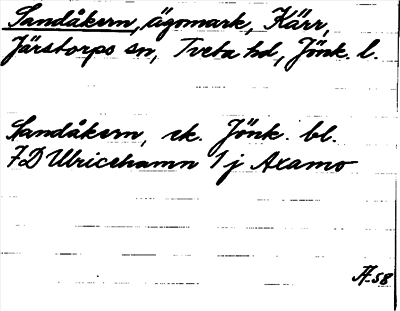 Sandåkern, ägomark, Kärr,
Järstorps sn, Tveta hd, Jönk. l.
Sandåkern, ek. Jönk. bl.
7D Ulricehamn 1j Axamo
Å-58